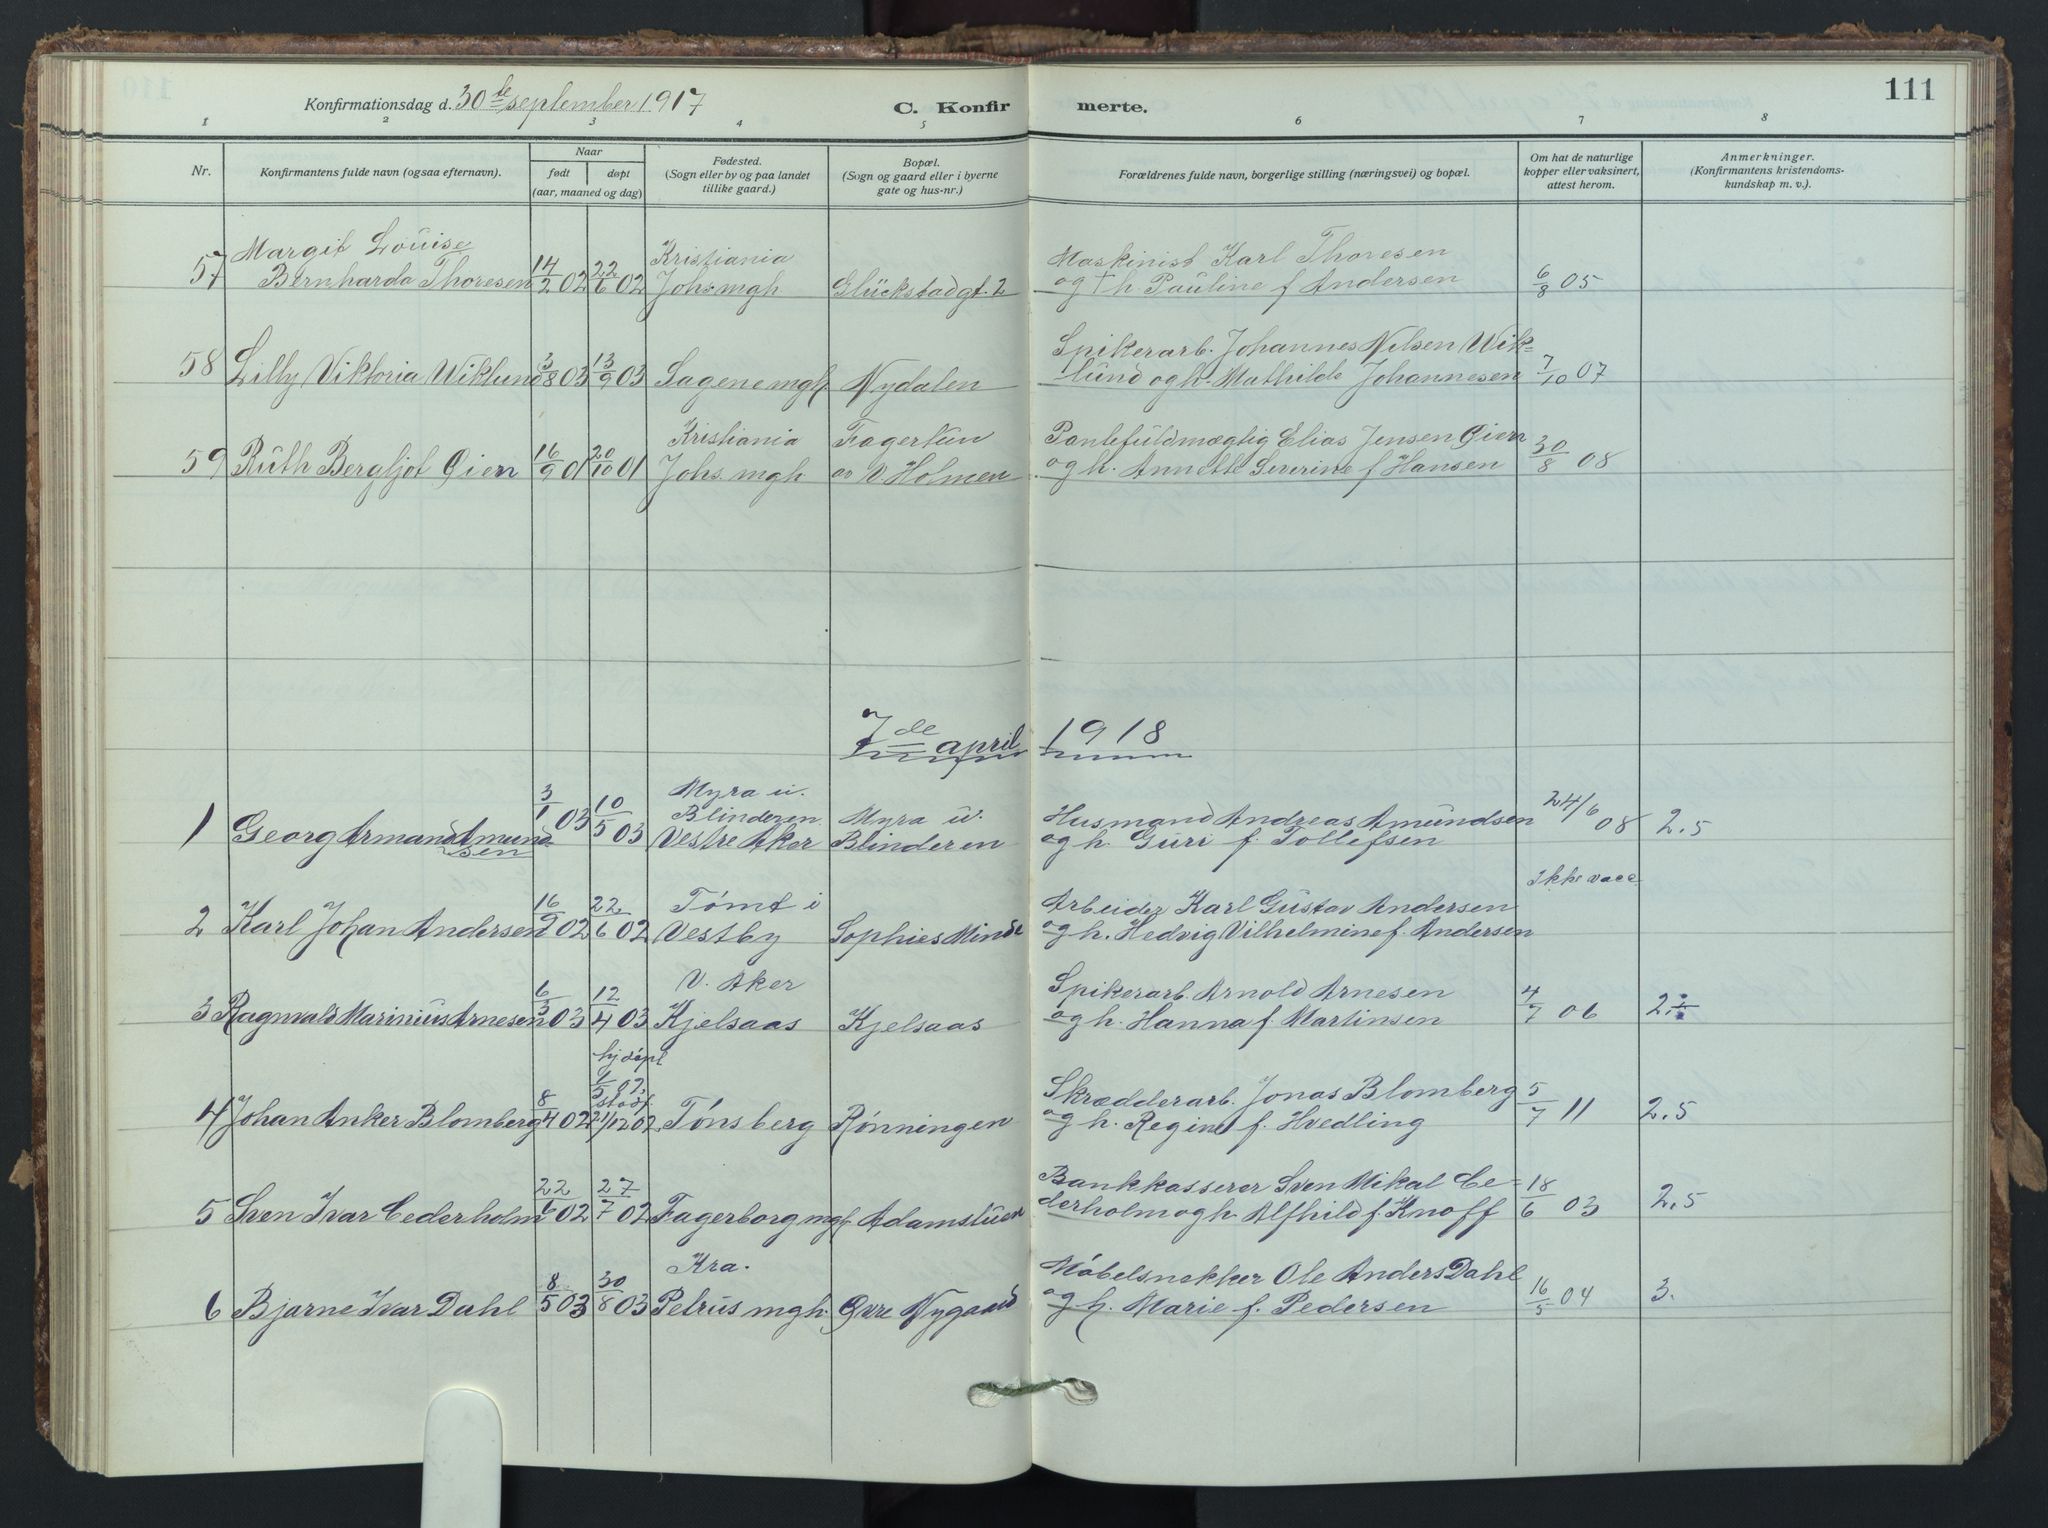 111
Konfirmationsdag d. 30 te september 1917
C. Konfirmerte.
1 2 3 4 5 6 7 8
Nr.
Konfirmantens fulde navn (ogsaa efternavn).
Naar
født døpt
(aar, maaned og dag)
Fødested.
(Sogn eller by og paa landet
tillike gaard.)
Bopæl.
(Sogn og gaard eller i byerne
gate og hus-nr.)
Forældrenes fulde navn, borgerlige stilling (næringsvei) og bopæl.
Om hat de naturlige
kopper eller vaksinert,
attest herom.
Anmerkninger.
(Konfirmantens kristendoms-
kundskap m. v.)
Margit Louise Kristiania Maskinist Karl Thoresen
57 Bernharda Thoresen 14/2 02 22/6 02 Johs. mgh Glückstadgt. 2 og † h. Pauline f Andersen 6/8 05
Spikerarb. Johannes Nilsen Wik-
58 Lilly Viktoria Wiklund 3/8 03 13/9 03 Sagene mgh Nydalen lund og h. Mathilde Johannesen 7/10 07
Kristiania Fagertun Pantefuldmægtig Elias Jensen Øien
59 Ruth Bergljot Øien 16/9 01 20/10 01 Johs. mgh av V. Holmen og h. Annette Severine f Hansen 30/8 08
7de april 1918
Myra u.
Blinderen Myra u. Husmand Andreas Amundsen 24/6 08 2.5
1 Georg Armand Amund-
sen 3/1 03 10/5 03 Vestre Aker Blinderen og h. Guri f. Tollefsen
Ikke vacc
Tømt i Arbeider Karl Gustav Andersen
2 Karl Johan Andersen 16/9 02 22/6 02 Vestby Sophies Minde og h. Hedvig Vilhelmine f. Andersen
V. Aker Spikerarb. Arnold Arnesen
3 Ragnvald Marinius Arnesen 6/3 03 12/4 03 Kjelsaas Kjelsaas og h. Hanna f. Martinsen 4/7 06
hj døpt
Skrædderarb. Jonas Blomberg
4 Johan Anker Blomberg 8/4 02 stadf. 21/12 02 Tønsberg Rønningen og h. Regine f. Hvedling 5/7 11 2.5
Bankkasserer Sven Mikal Ce-
5 Sven Ivar Cederholm 22/6 02 27/7 02 Fagerborg mgh Adamstuen derholm og h. Alfhild f. Knoff 18/6 03 2.5
Kra. Møbelsnekker Ole Anders Dahl
6 Bjarne Ivar Dahl 8/5 03 30/8 03 Petrus mgh. Øvre Nygaard og h. Marie f. Pedersen 16/5 04 3.